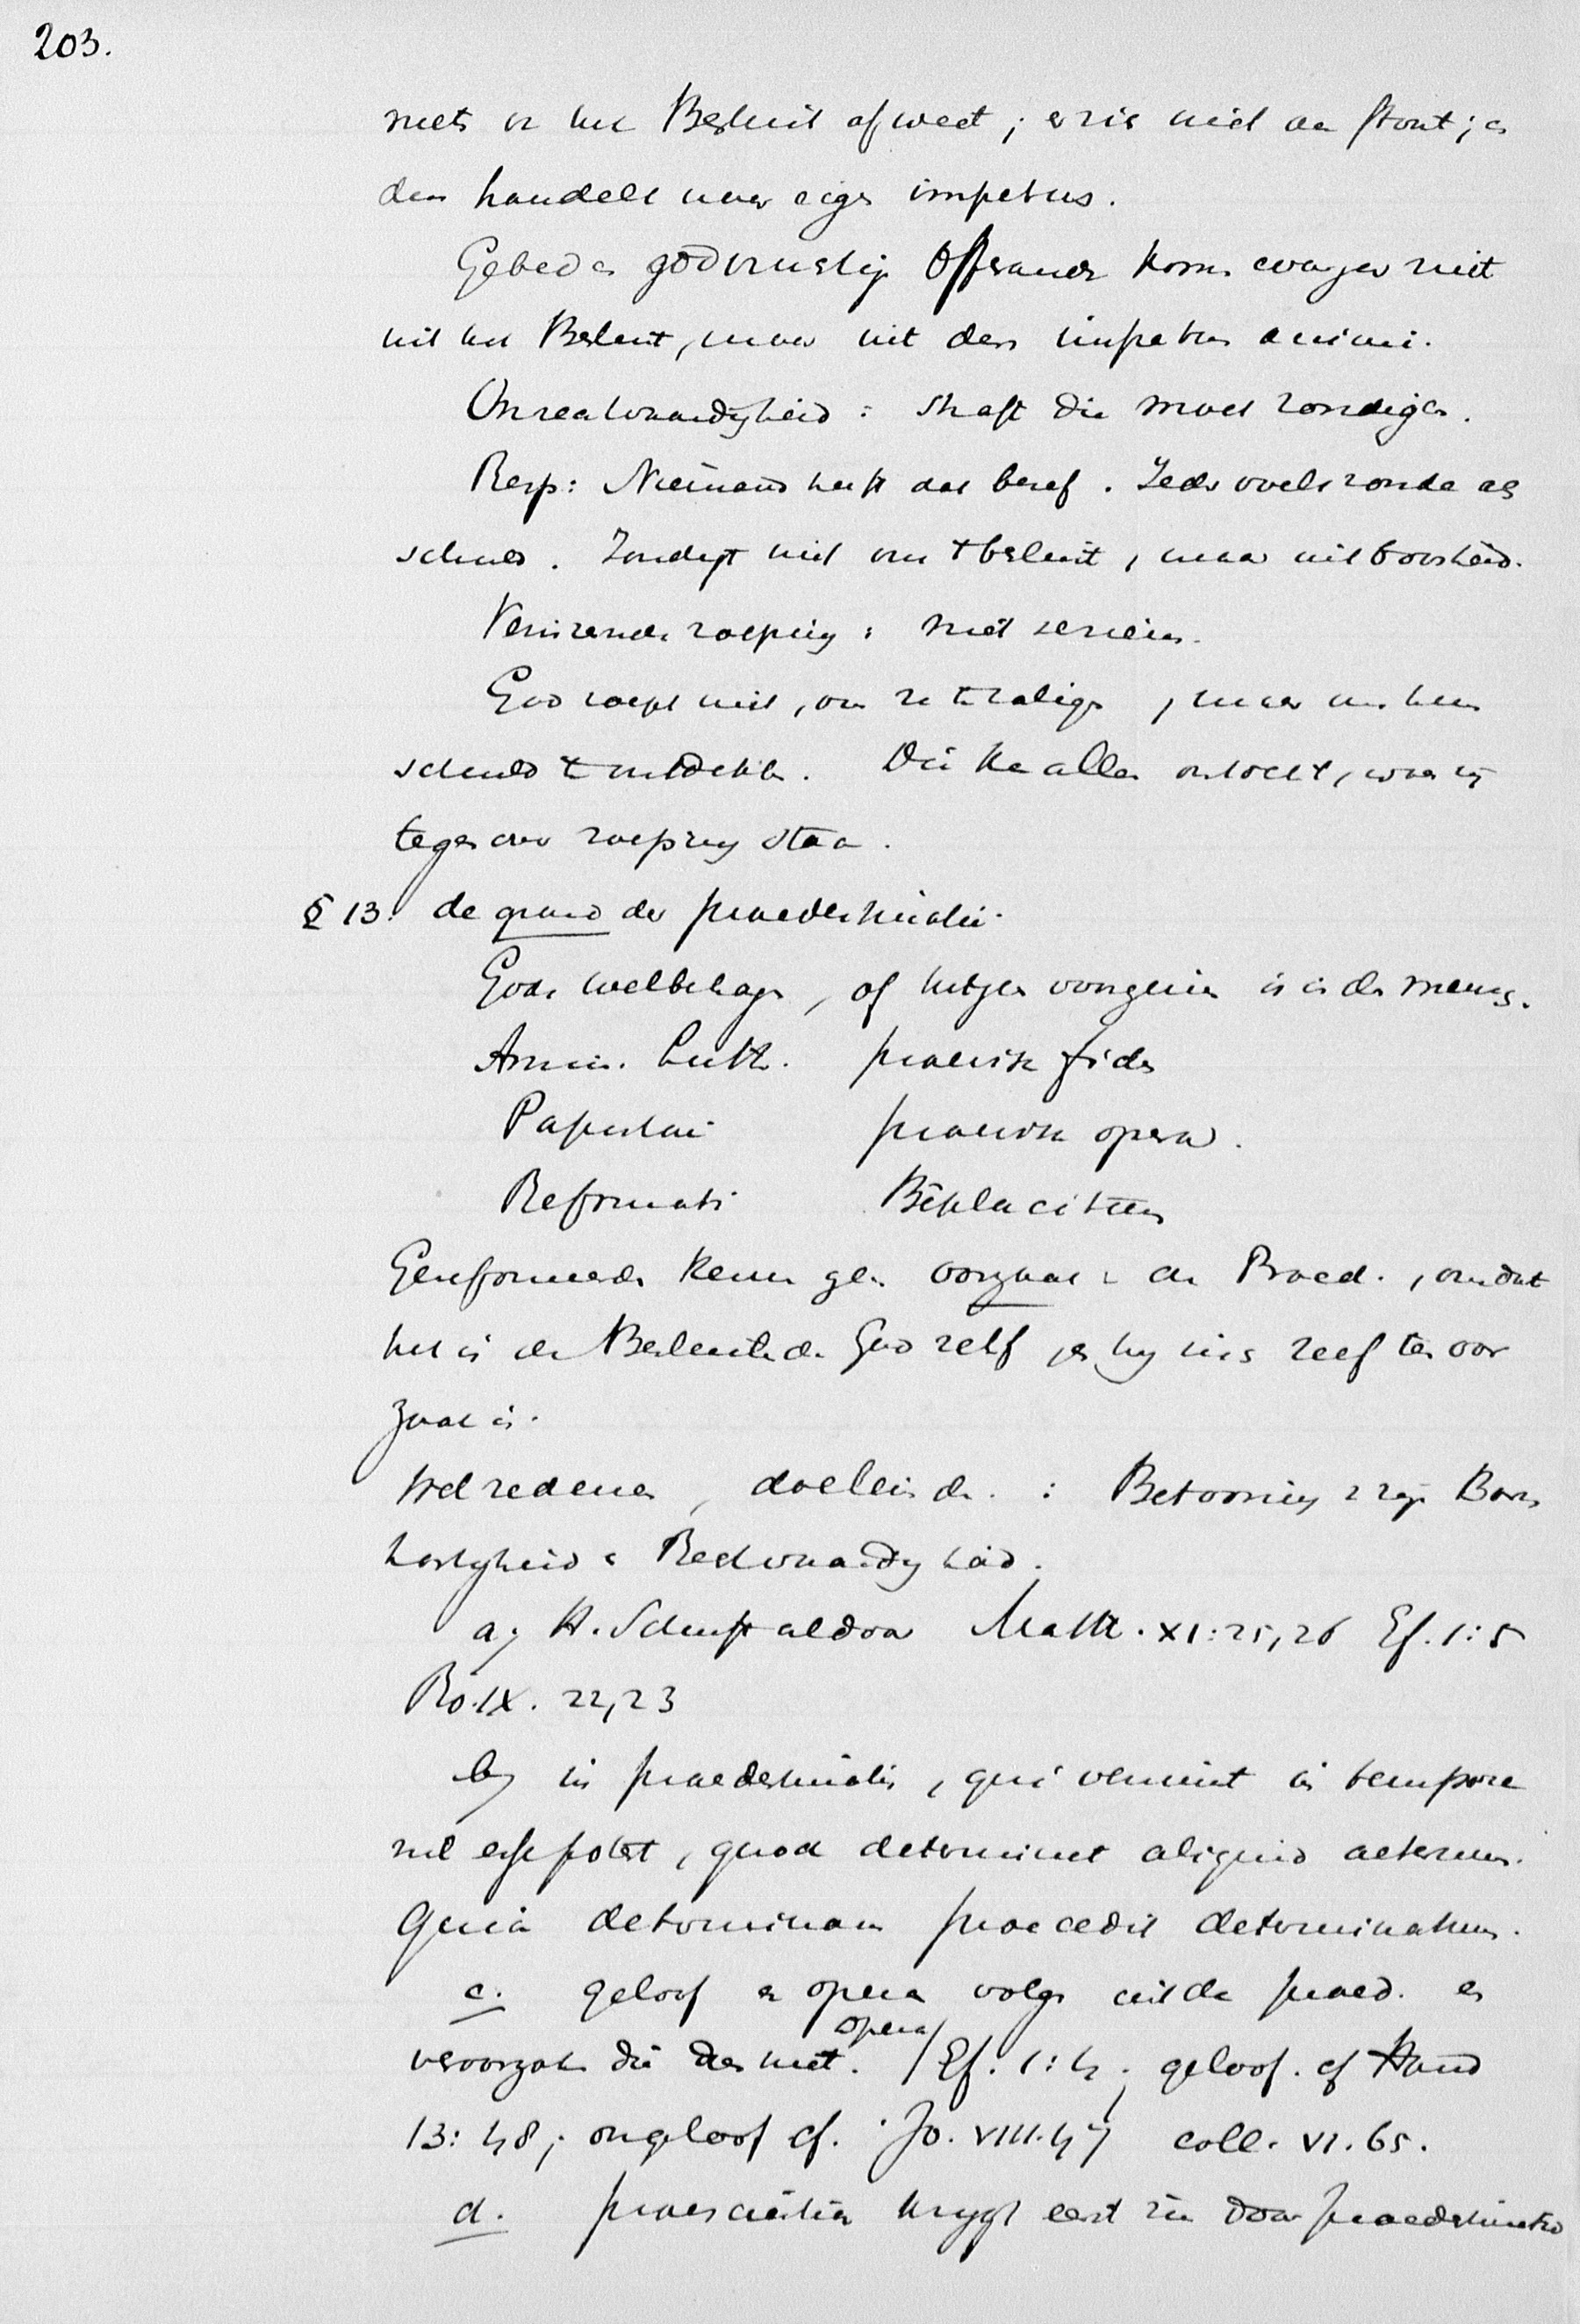 203.
niets v. het Besluit afweet; er is niet en stout; en
dan handelt naar eigen impetus.
Gebed en godvruchtige Offerande komen evenzeer niet
uit het Besluit, maar uit den impetus animi.
Onrechtvaardigheid: straft die moet zondigen.
Resp: Niemand heeft dat besef. Ieder voelt zonde als
schuld. Zondigt niet om 't besluit, maar uit boosheid.
roeping: niet
God roept niet, om ze te zaligen, maar om hen
schuld te ontdekken. Die alle
tegenover roeping staan.
§ 13. de grond der praedestinatie.
Gods welbehagen, of hetgeen voorzien is in den mensch.
Armin. Luth. praevisa fides
Papistae praevisa opera.
Reformati Beneplacitum
Gereformeerden kennen geen oorzaak v. de Praed., omdat
het is de Besluitende God zelf en hij niets zelf ter oor
zaak is.
Wel redenen, doeleinden: Betooning v. zijn Barm
hartigheid en Rechtvaardigheid.
a) H. Schrift aldoor Matth. XI:25,26 Ef. 1:5
Ro. IX. 22,23
b) in praedestinatis, qui veniunt in tempore
nil esse potest, quod determinet aliquid aeternum.
Quia determinans praecedit determinatum.
c. geloof en opera volgen uit de praed. en
veroorzaken die dus niet. opera/ Ef. 1:4; geloof. cf Hand
13:48; ongeloof cf. Jo. VIII.47 coll. VI.65.
d. praescientia krijgt eerst zin door praedestinatio